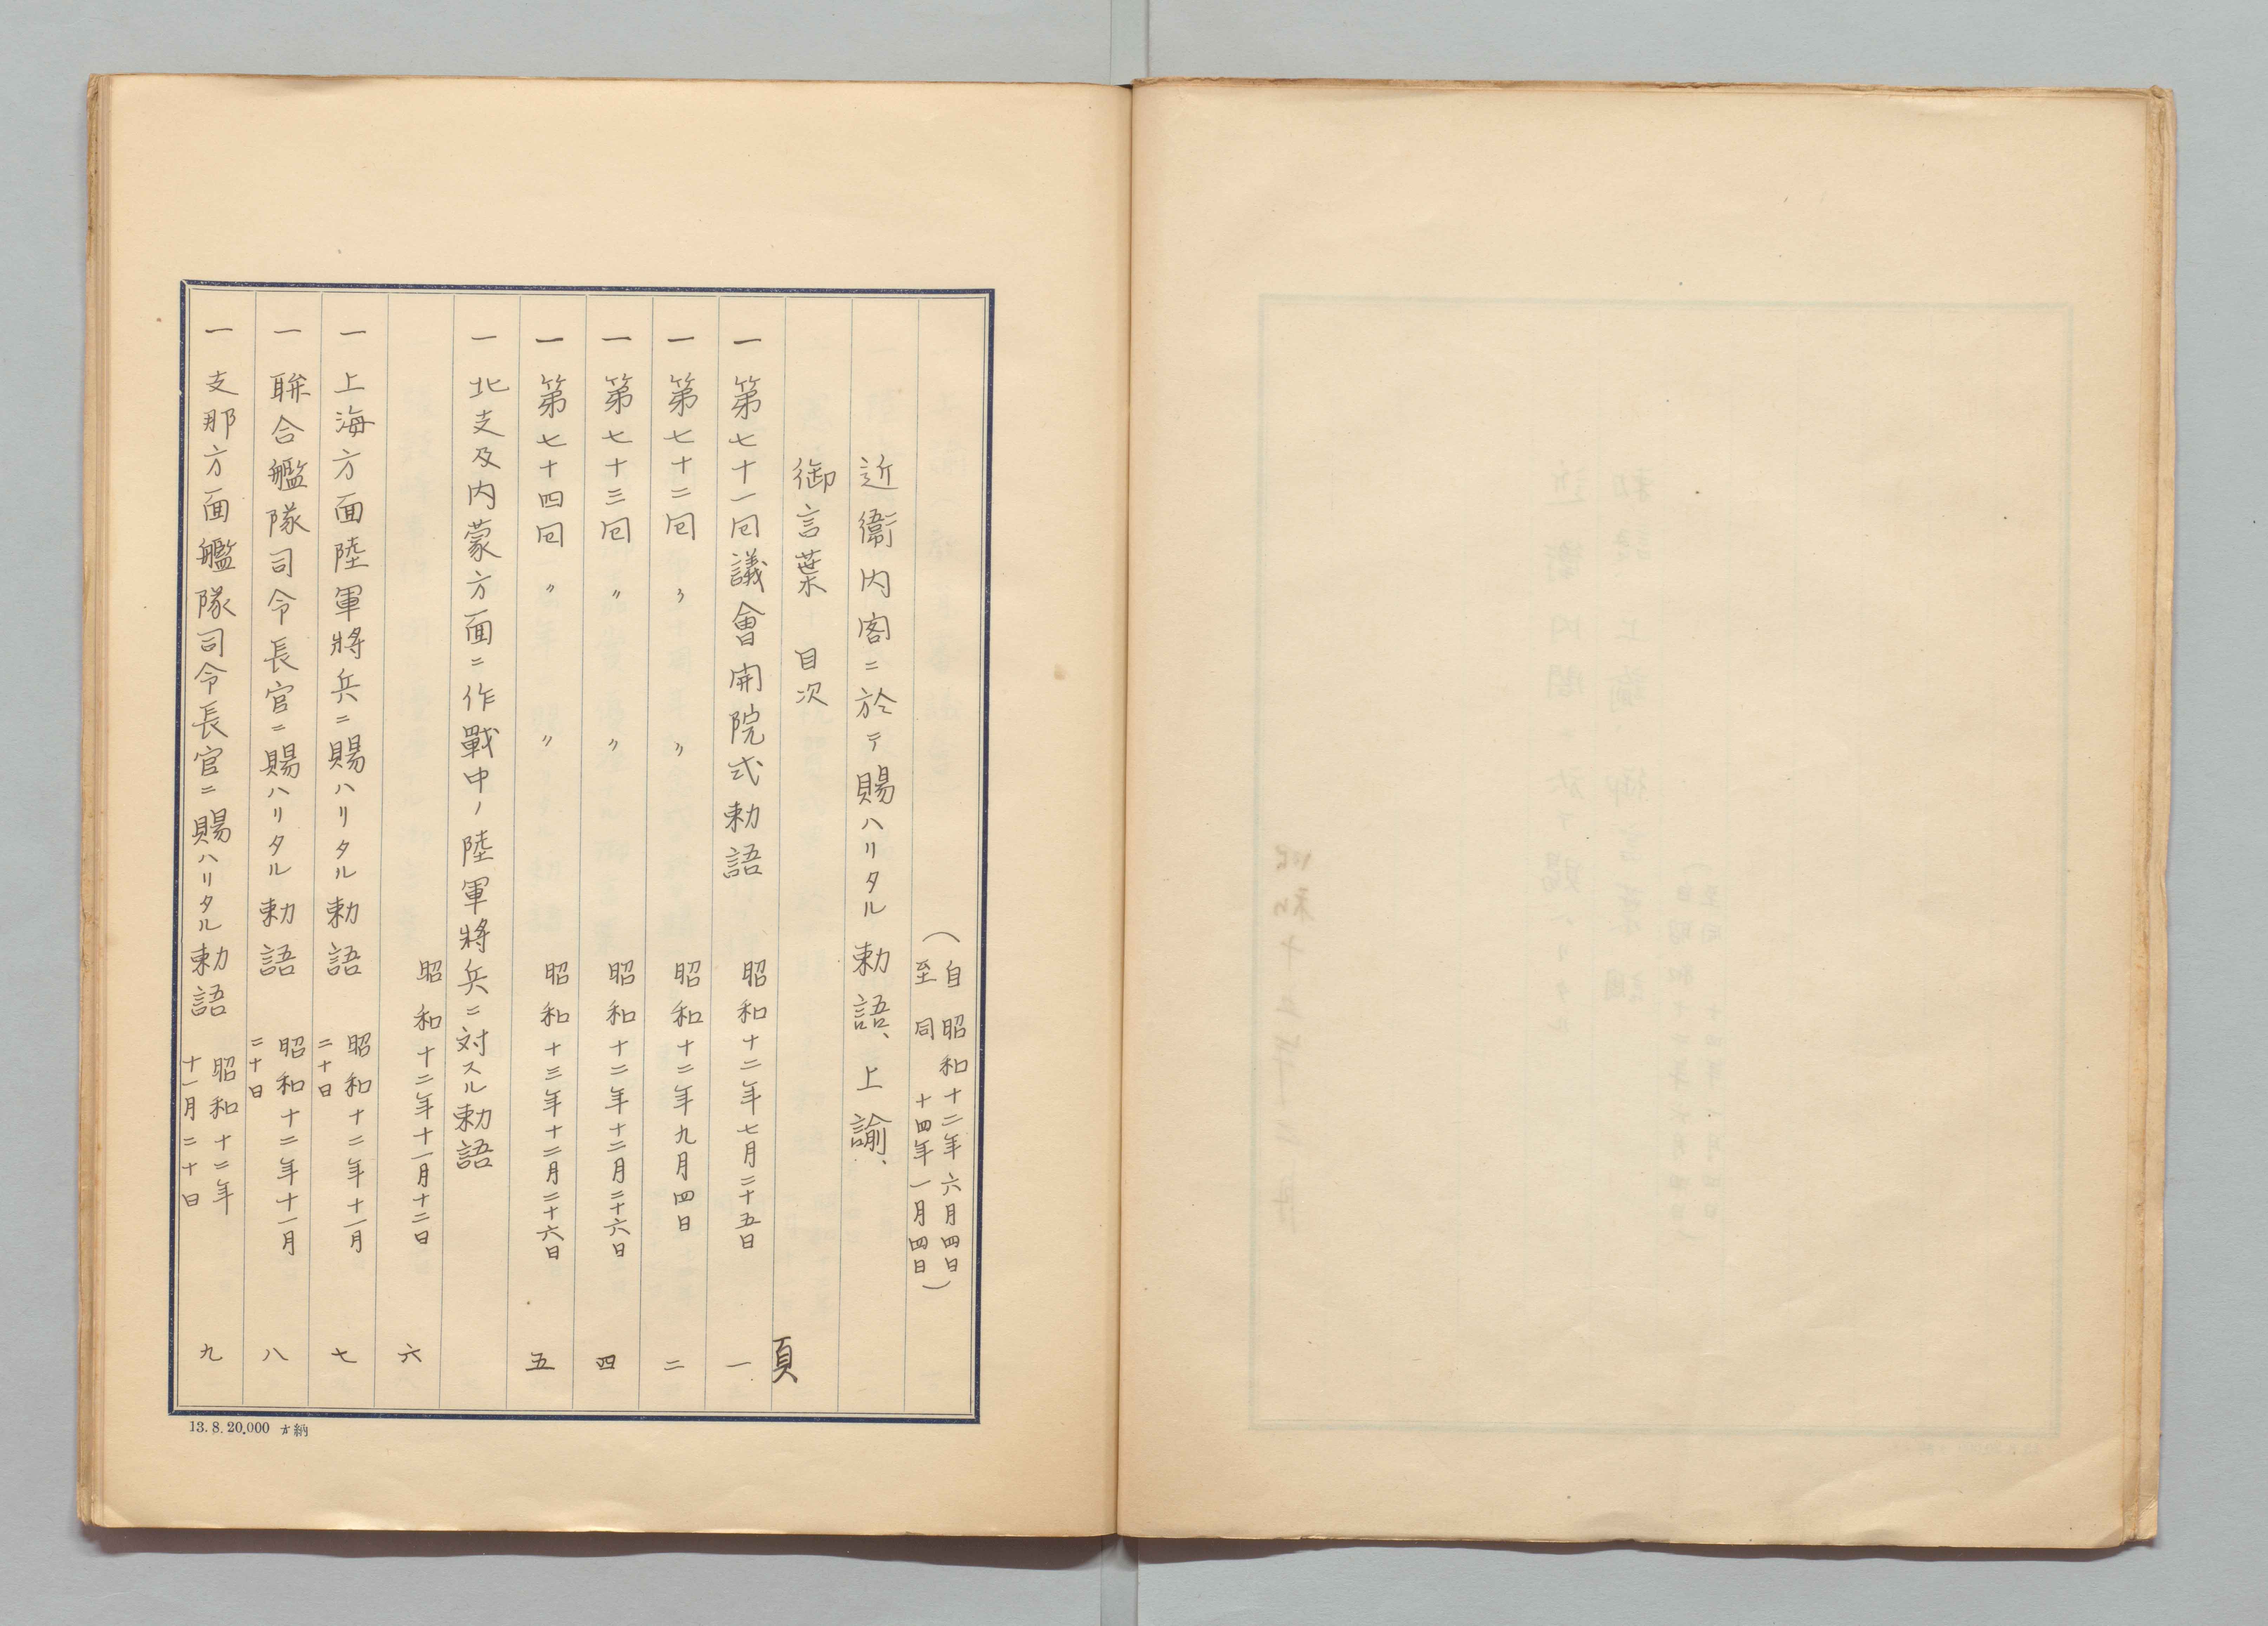 (自 昭和十二年六月四日
至 同 十四年一月四日)
近衞内閣ニ於テ賜ハリタル勅語、上諭、
御言葉 目次
頁
一 第七十一回議會開院式勅語 昭和十二年七月二十五日 一
一 第七十二回 〃 〃 昭和十二年九月四日 二
一 第七十三回 〃 〃 昭和十二年十二月二十六日 四
一 第七十四回 〃 〃 昭和十三年十二月二十六日 五
一 北支及内蒙方面ニ作戰中ノ陸軍將兵ニ対スル勅語
昭和十二年十一月十二日 六
一 上海方面陸軍將兵ニ賜ハリタル勅語 昭和十二年十一月
二十日 七
一 聨合艦隊司令長官ニ賜ハリタル勅語 昭和十二年十一月
二十日 八
一 支那方面艦隊司令長官ニ賜ハリタル勅語 昭和十二年
十一月二十日 九
13.8.20.000 オ納